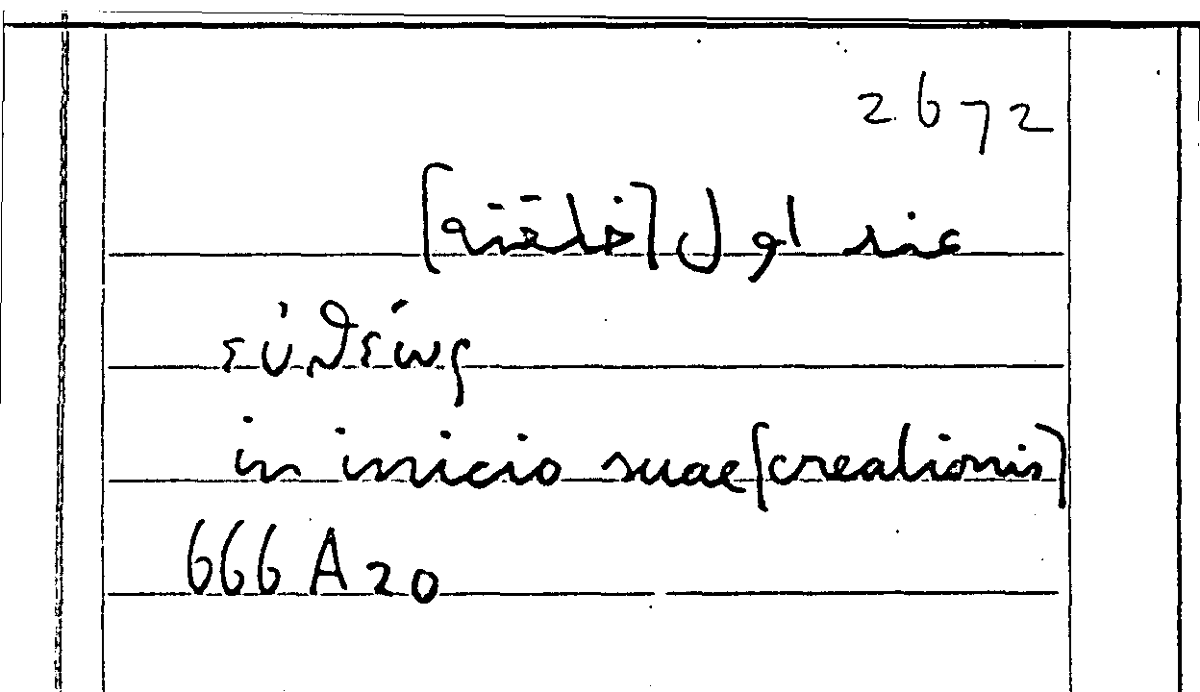 2672
عند اول [خلقته]
εὐθέως
in inicio suae [creationis]
666 A 20